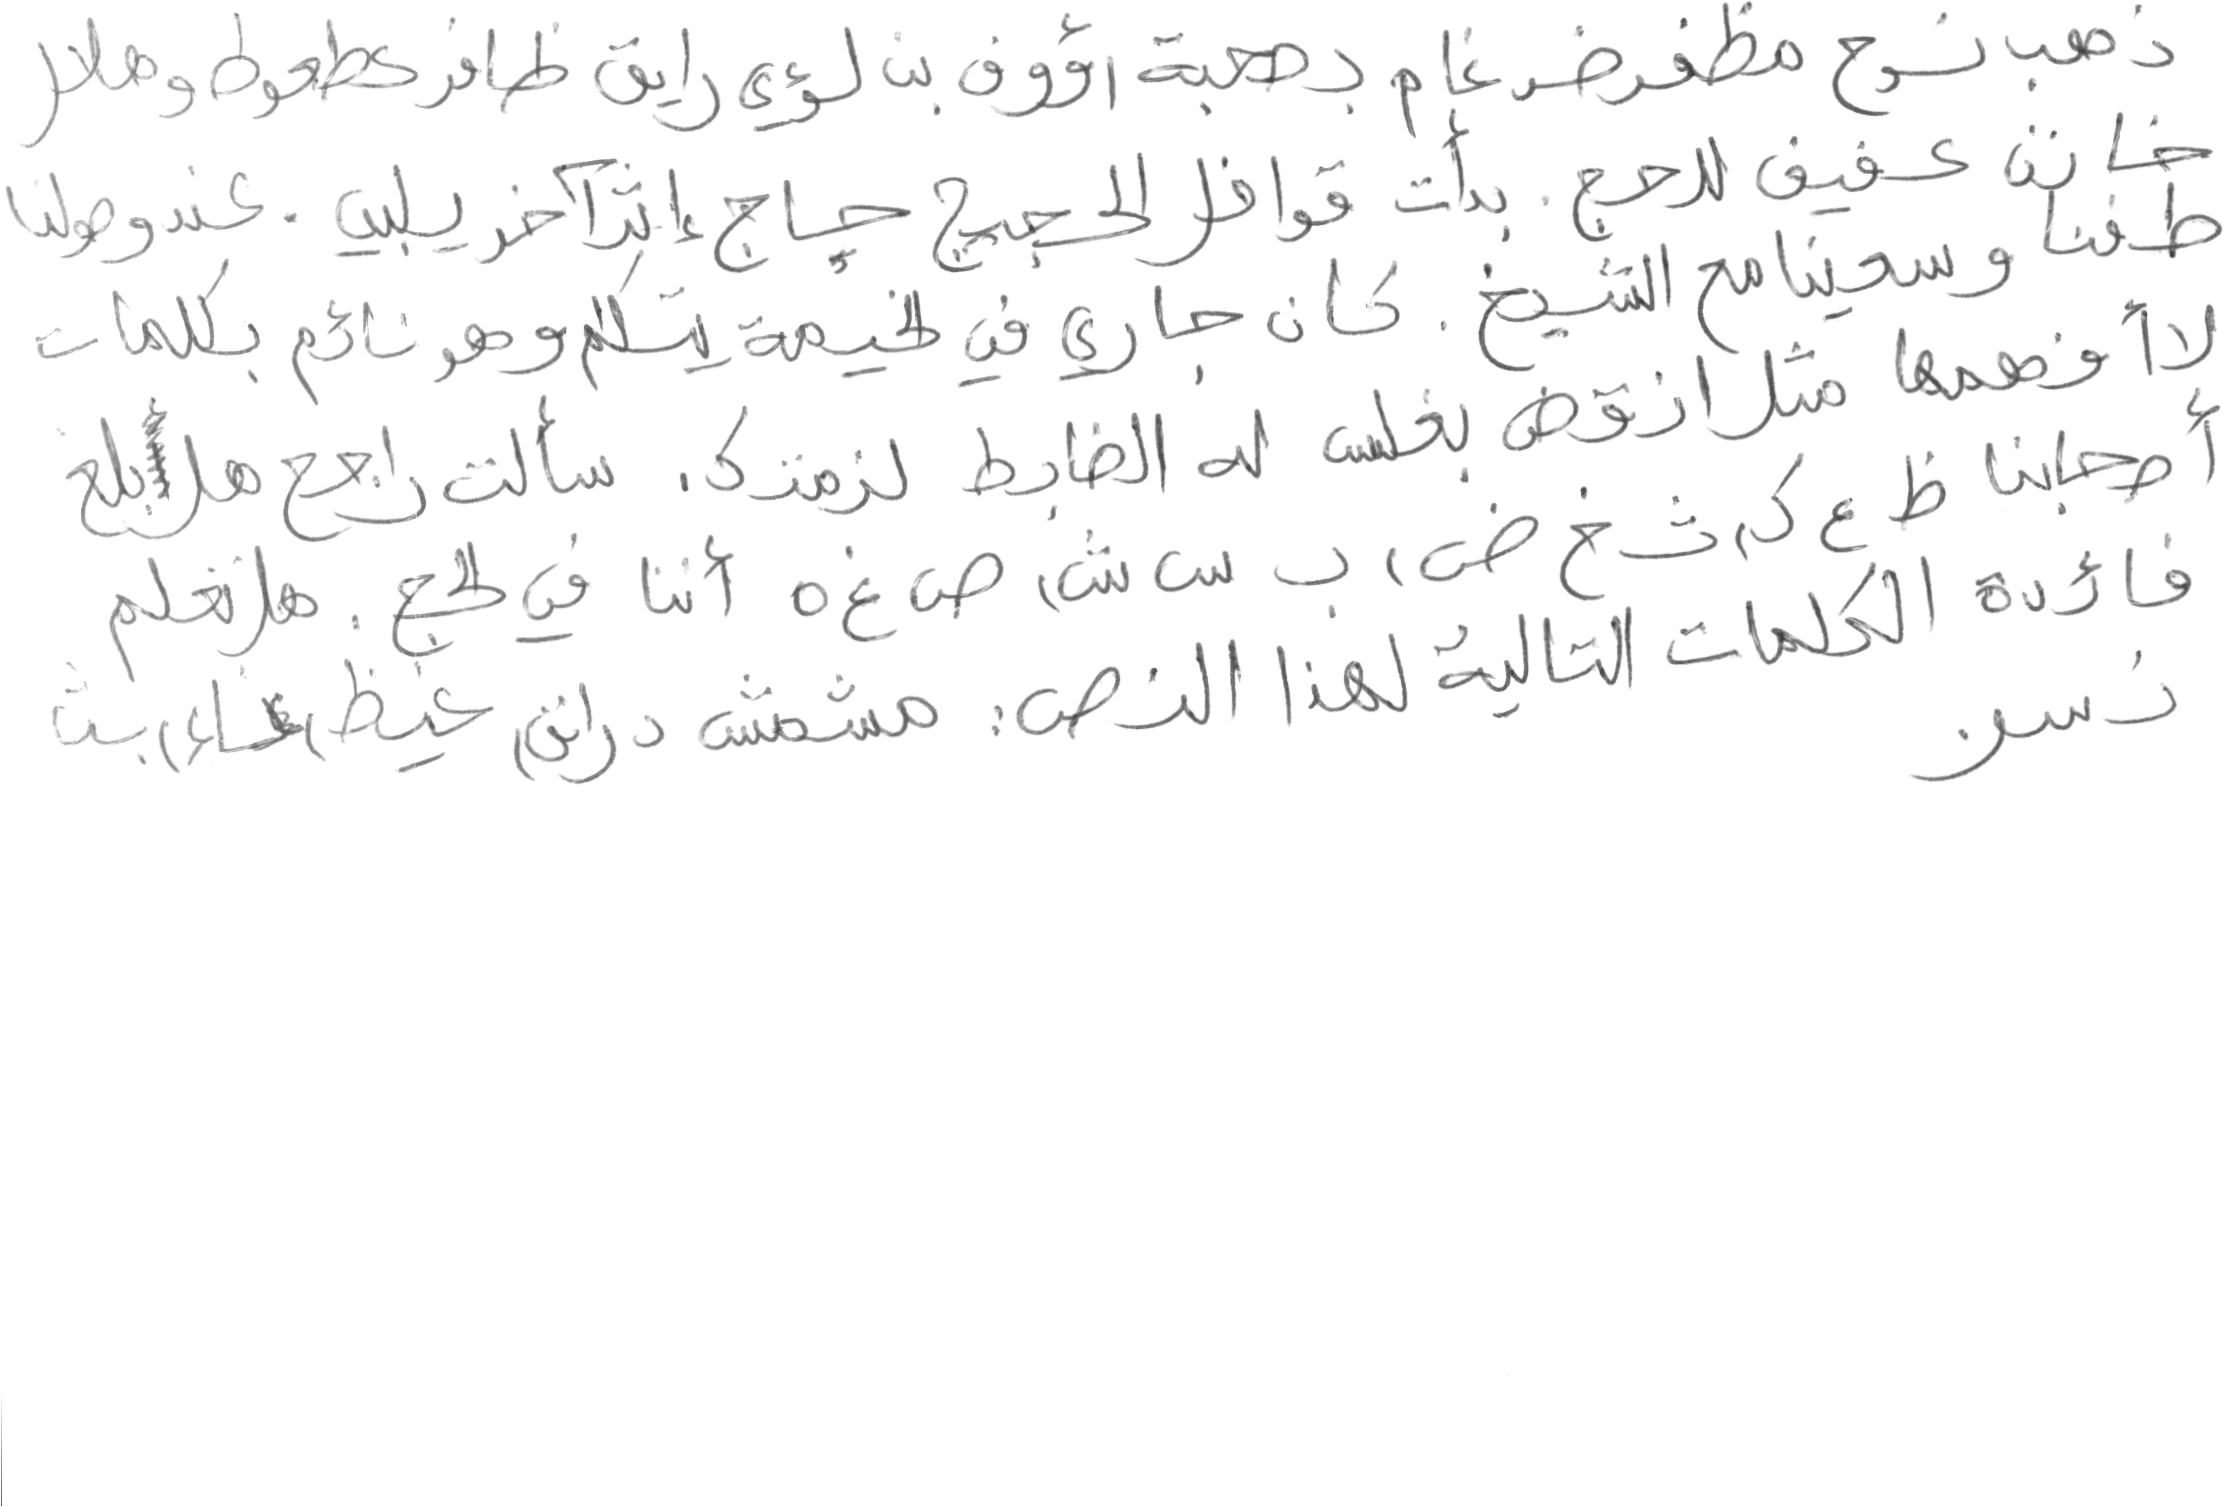 ذهب نوح مظفر ضرغام بصحبة رؤوف بن لؤي رايق ظافر عطعوط وهلال
خازن عفيف للحج. بدأت قوافل الحجيج حجاج إثر آخر يلبي. عند وصولنا
طفنا وسعينا مع الشيخ. كان جاري في الخيمة يتكلم وهو نائم بكلمات
لا أفهمها مثل انقض بغلس له الضابط لزمتك. سألت راجح هل أبلغ
أصحابنا ظ ع ك، ث خ ض، ب س ش، ص غ ه أننا في الحج. هل تعلم
فائدة الكلمات التالية لهذا النص: مشمش دراق، غيظ، غذاء، بث
نسر